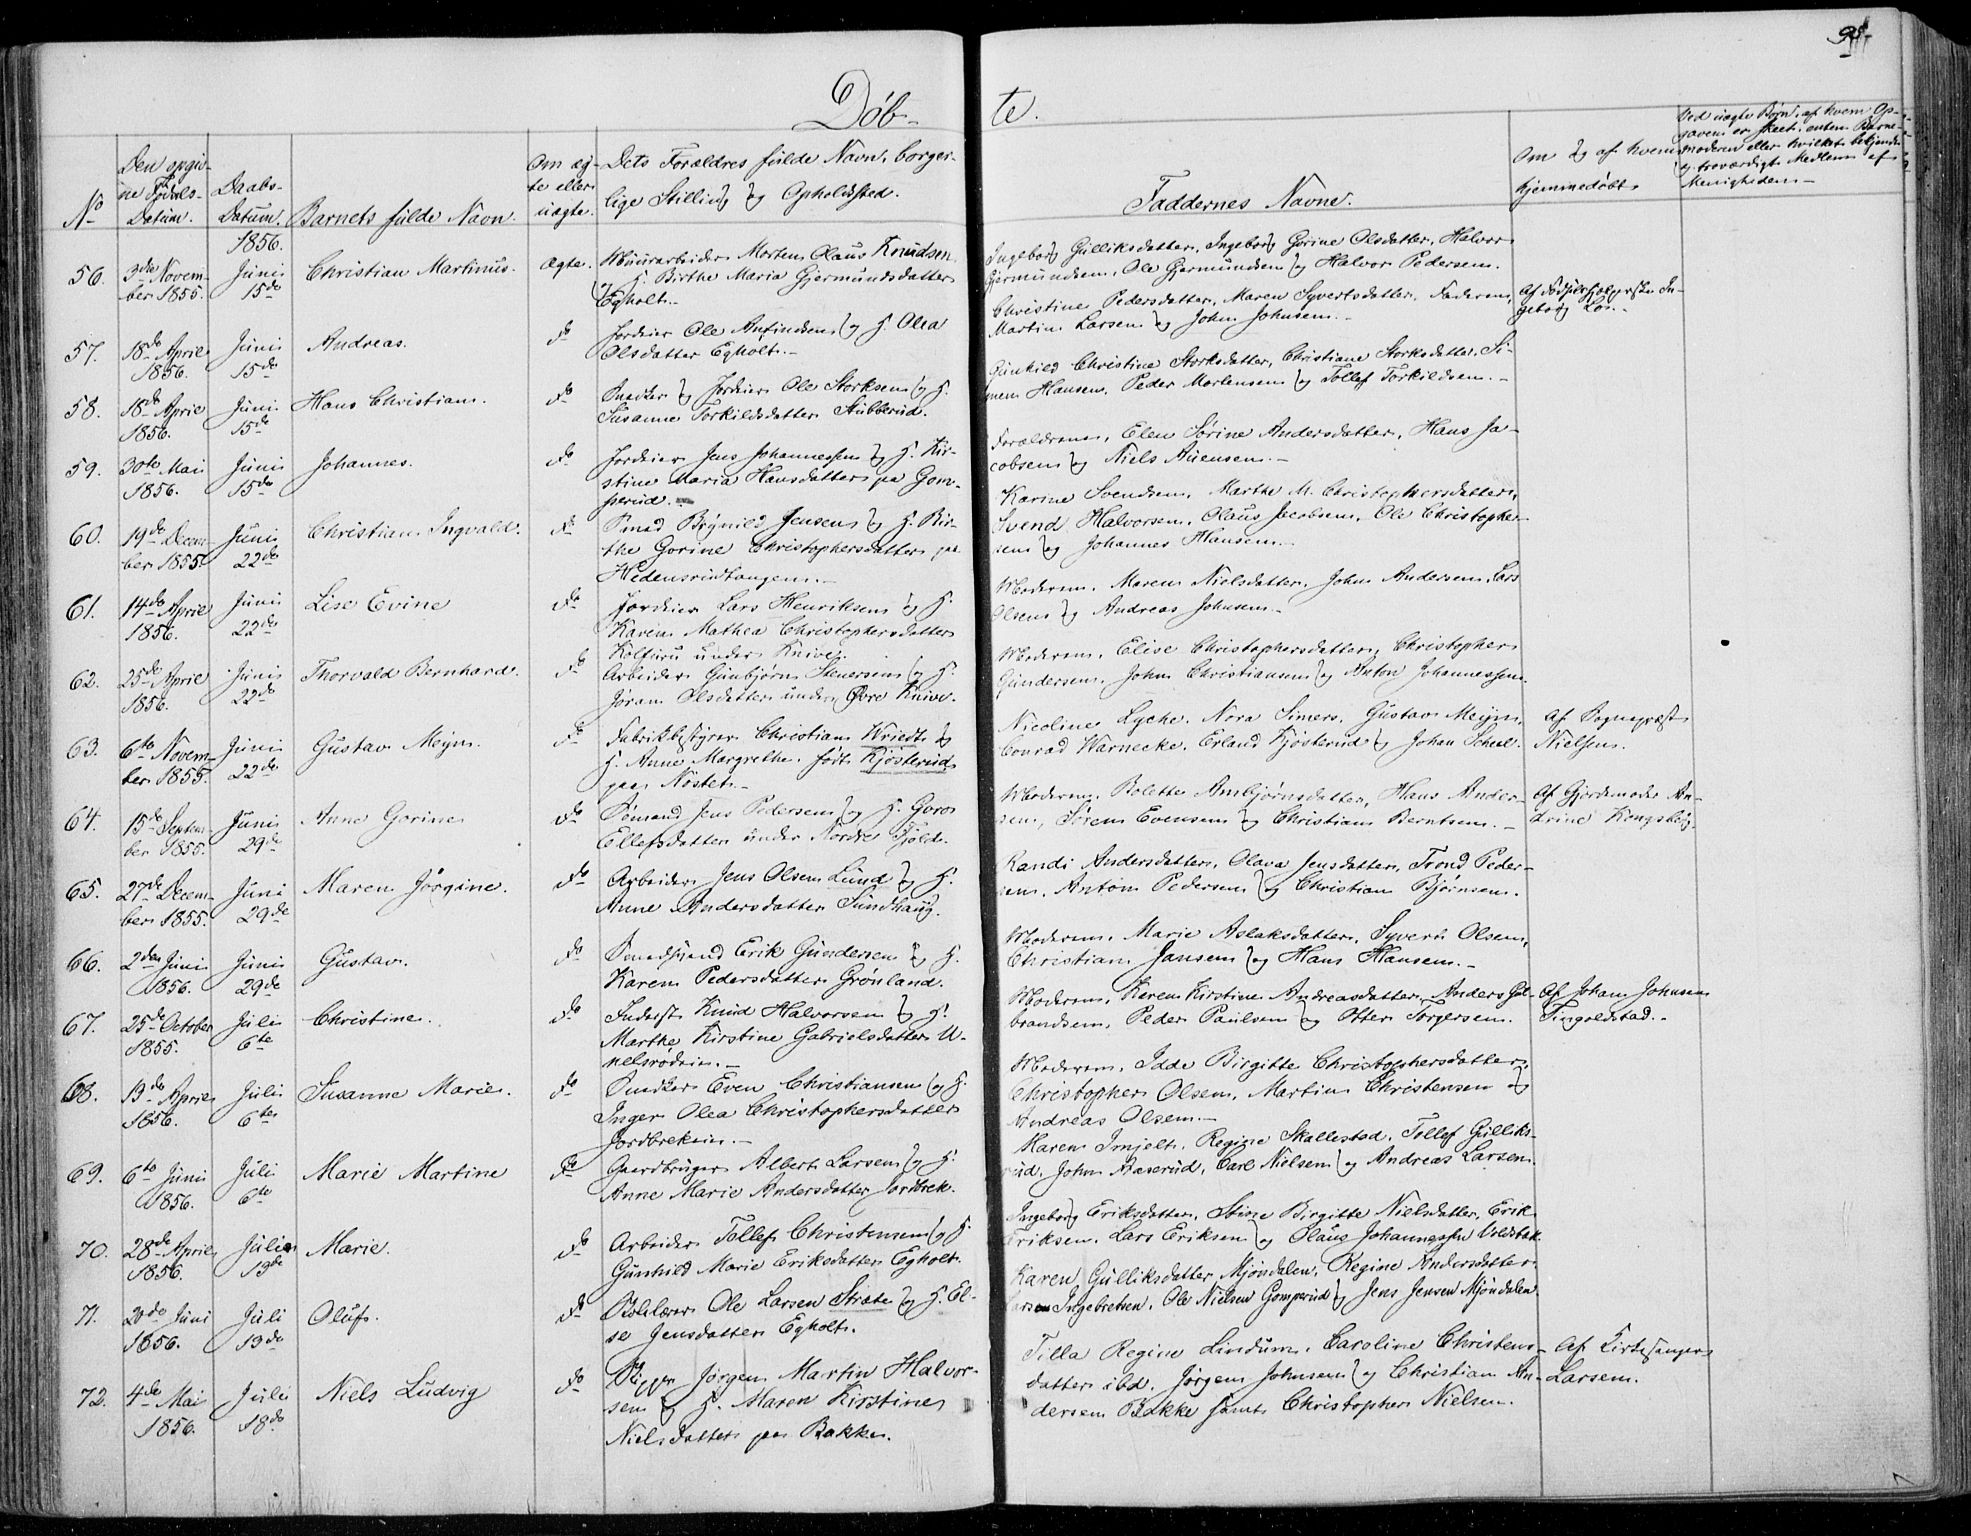 95
Døb-
te.
No
Den opgiv-
ne Føds-
Datum.
Daabs-
Datum.
Barnets fulde Navn.
Om æg-
te eller
uægte.
Dets Forældres fulde Navn, borger-
lige Stilling og Opholdssted.
Faddernes Navne.
Om og af hvem
hjemmedøbt.
Ved uægte Børn, af hvem Op-
gaven er skeet, enten Barne-
moderen eller hvilket bekjendt
og troværdigt Medlem af
Menigheden
1856.
56.
3die Novem-
ber 1855.
Juni
15de
Christian Martinus.
Ægte.
Muurarbeider Morten Olaus Knudsen
og H. Birthe Maria Gjermundsdatter
Egholt.
Ingeborg Gulliksdatter, Ingeborg Gorine Olsdatter, Halvor
Gjermundsen, Ole Gjermundsen og Halvor Pedersen.
57.
18de April
1856.
Juni
15de
Andreas.
do
Jordeier Ole Anfindsen og H. Olea
Olsdatter Egholt.
Christine Pedersdatter, Maren Syvertsdatter, Faderen,
Martin Larsen og John Johnsen.
Af Fødselshjælperske In-
geborg Løs.
58.
18de April
1856.
Juni
15de
Hans Christian.
do
Snedker og Jordeier Ole Storksen og H.
Susanne Torkildsdatter Stubberud.
Gunhild Christine Storksdatter, Christiane Storksdatter, Si-
men Hansen, Peder Mortensen og Tollef Torkildsen.
59.
30te Mai
1856.
Juni
15de
Johannes.
do
Jordeier Jens Johannessen og H. Kir-
stine Maria Hansdatter paa Gom-
perud.
Forældrene, Elen Sørine Andersdatter, Hans Ja-
cobsen og Niels Auensen.
60.
19de Decem-
ber 1855.
Juni
22de
Christian Ingvald.
do
Smed Brynild Jensen og H. Bir-
the Gorine Christophersdatter paa
Hedensrudtangen.
Karine Svendsen, Marthe M. Christophersdatter,
Svend Halvorsen, Olaus Jacobsen, Ole Christopher-
sen og Johannes Hansen.
61.
14de April
1856.
Juni
22de
Lise Evine
do
Jordeier Lars Henriksen og H.
Karen Mathea Christophersdatter
Kolfuru under Knive.
Moderen, Maren Nielsdatter, John Andersen, Lars
Olsen og Andreas Johnsen.
62.
25de April
1856.
Juni
22de
Thorvald Bernhard.
do
Arbeider Gunbjørn Stenersen og H.
Jøran Olsdatter under Øvre Knive.
Moderen, Elise Christophersdatter, Christopher
Gundersen, John Christiansen og Anton Johannessen.
63.
6te Novem-
ber 1855.
Juni
22de
Gustav Meyn.
do
Fabrikbestyrer Christian Wriedt og
H. Anne Margrethe født Kjøsterud
paa Nøstet.
Nicoline Lyche, Nora Simers, Gustav Meyn,
Conrad Warnecke, Erland Kjøsterud og Johan Scheel.
Af Sognepræst
Nielsen.
64.
15de Septem-
ber 1855.
Juni
29de
Anne Gorine
do
Sømand Jens Pedersen og H. Goro
Ellefsdatter under Nordre Fjøld.
Moderen, Bolette Ambjørnsdatter, Hans Ander-
sen, Søren Evensen og Christian Berntsen.
Af Gjordemoder An-
drine Kongsberg.
65.
27de Decem-
ber 1855.
Juni
29de
Maren Jørgine.
do
Arbeider Jens Olsen Lund og H.
Anne Andersdatter Sundhaug.
Randi Andersdatter, Olava Jensdatter, Trond Peder-
sen, Anton Pedersen og Christian Bjørnsen.
66.
2den Juni
1856.
Juni
29de
Gustav.
do
Smedsvend Erik Gundersen og H.
Karen Pedersdatter Grønland.
Moderen, Marie Aslaksdatter, Syvert Olsen,
Christian Jansen og Hans Hansen.
67.
25de October
1855.
Juli
6te
Christine.
do
Inderst Knud Halvorsen og H.
Marthe Kirstine Gabrielsdatter U-
nelsrødeie.
Moderen, Karen Kirstine Andreasdatter, Anders Gul-
brandsen, Peder Paulsen og Otter Torgersen.
Af Johan Johnsen
Tingoldstad.
68.
19de April
1856.
Juli
6te
Susanne Marie.
do
Snedker Even Christiansen og H.
Inger Olea Christophersdatter
Jordbrekeie.
Moderen, Idde Birgitte Christophersdatter,
Christopher Olsen, Martin Christensen og
Andreas Olsen.
69.
6te Juni
1856.
Juli
6te
Marie Martine
do
Gaardbruger Albert Larsen og H.
Anne Marie Andersdatter Jordbrek.
Maren Imjelt, Regine Skallestad, Tollef Gulliks-
rud, John Aaserud, Carl Nielsen og Andreas Larsen.
70.
28de April
1856.
Juli
13de
Marie.
do
Arbeider Tollef Christensen og H.
Gunhild Marie Eriksdatter Egholt.
Ingeborg Eriksdatter, Stine Birgitte Nielsdatter, Erik
Eriksen, Lars Eriksen og Olaus Johannessen Voldstak
71.
20de Juni
1856.
Juli
13de
Oluf.
do
Skolelærer Ole Larsen Strate og H. El-
se Jensdatter Egholt.
Karen Gulliksdatter Mjøndalen, Regine Andersdatter,
Larsen Ingebretsen, Ole Nielsen Gomperud og Jens Jensen Mjøndalen
72.
4de Mai
1856.
Juli
18de
Niels Ludvig
do
Jørgen Martin Halvor-
sen og H. Maren Kirstine
Nielsdatter paa Bakke.
Tilla Regine Lindum, Caroline Christens-
datter ibd. Jørgen Johnsen og Christian An-
dersen Bakke samt Christopher Nielsen.
Af Kirkesanger
Larsen.